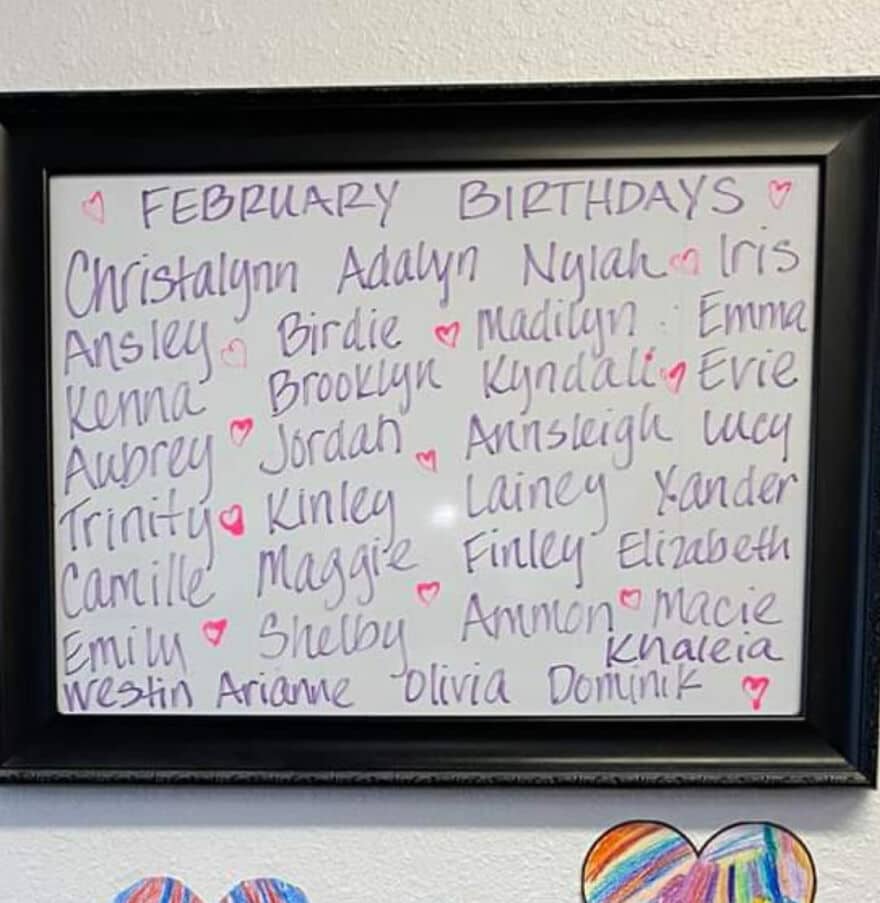 FEBRUARY BIRTHDAYS
Christalynn Adalyn Nylah Iris
Ansley Birdie Madilyn Emma
Kenna Brooklyn Kyndall Evie
Aubrey Jordan Annsleigh Lucy
Trinity Kinley Lainey Xander
Camille Maggie Finley Elizabeth
Emily Shelby Ammon Macie
Khaleia
Westin Arianne Olivia Dominik